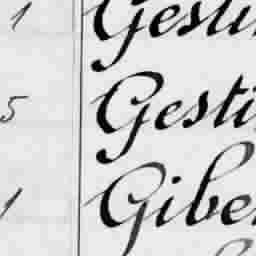 1 Gesti
5 Gesti
1 Giber